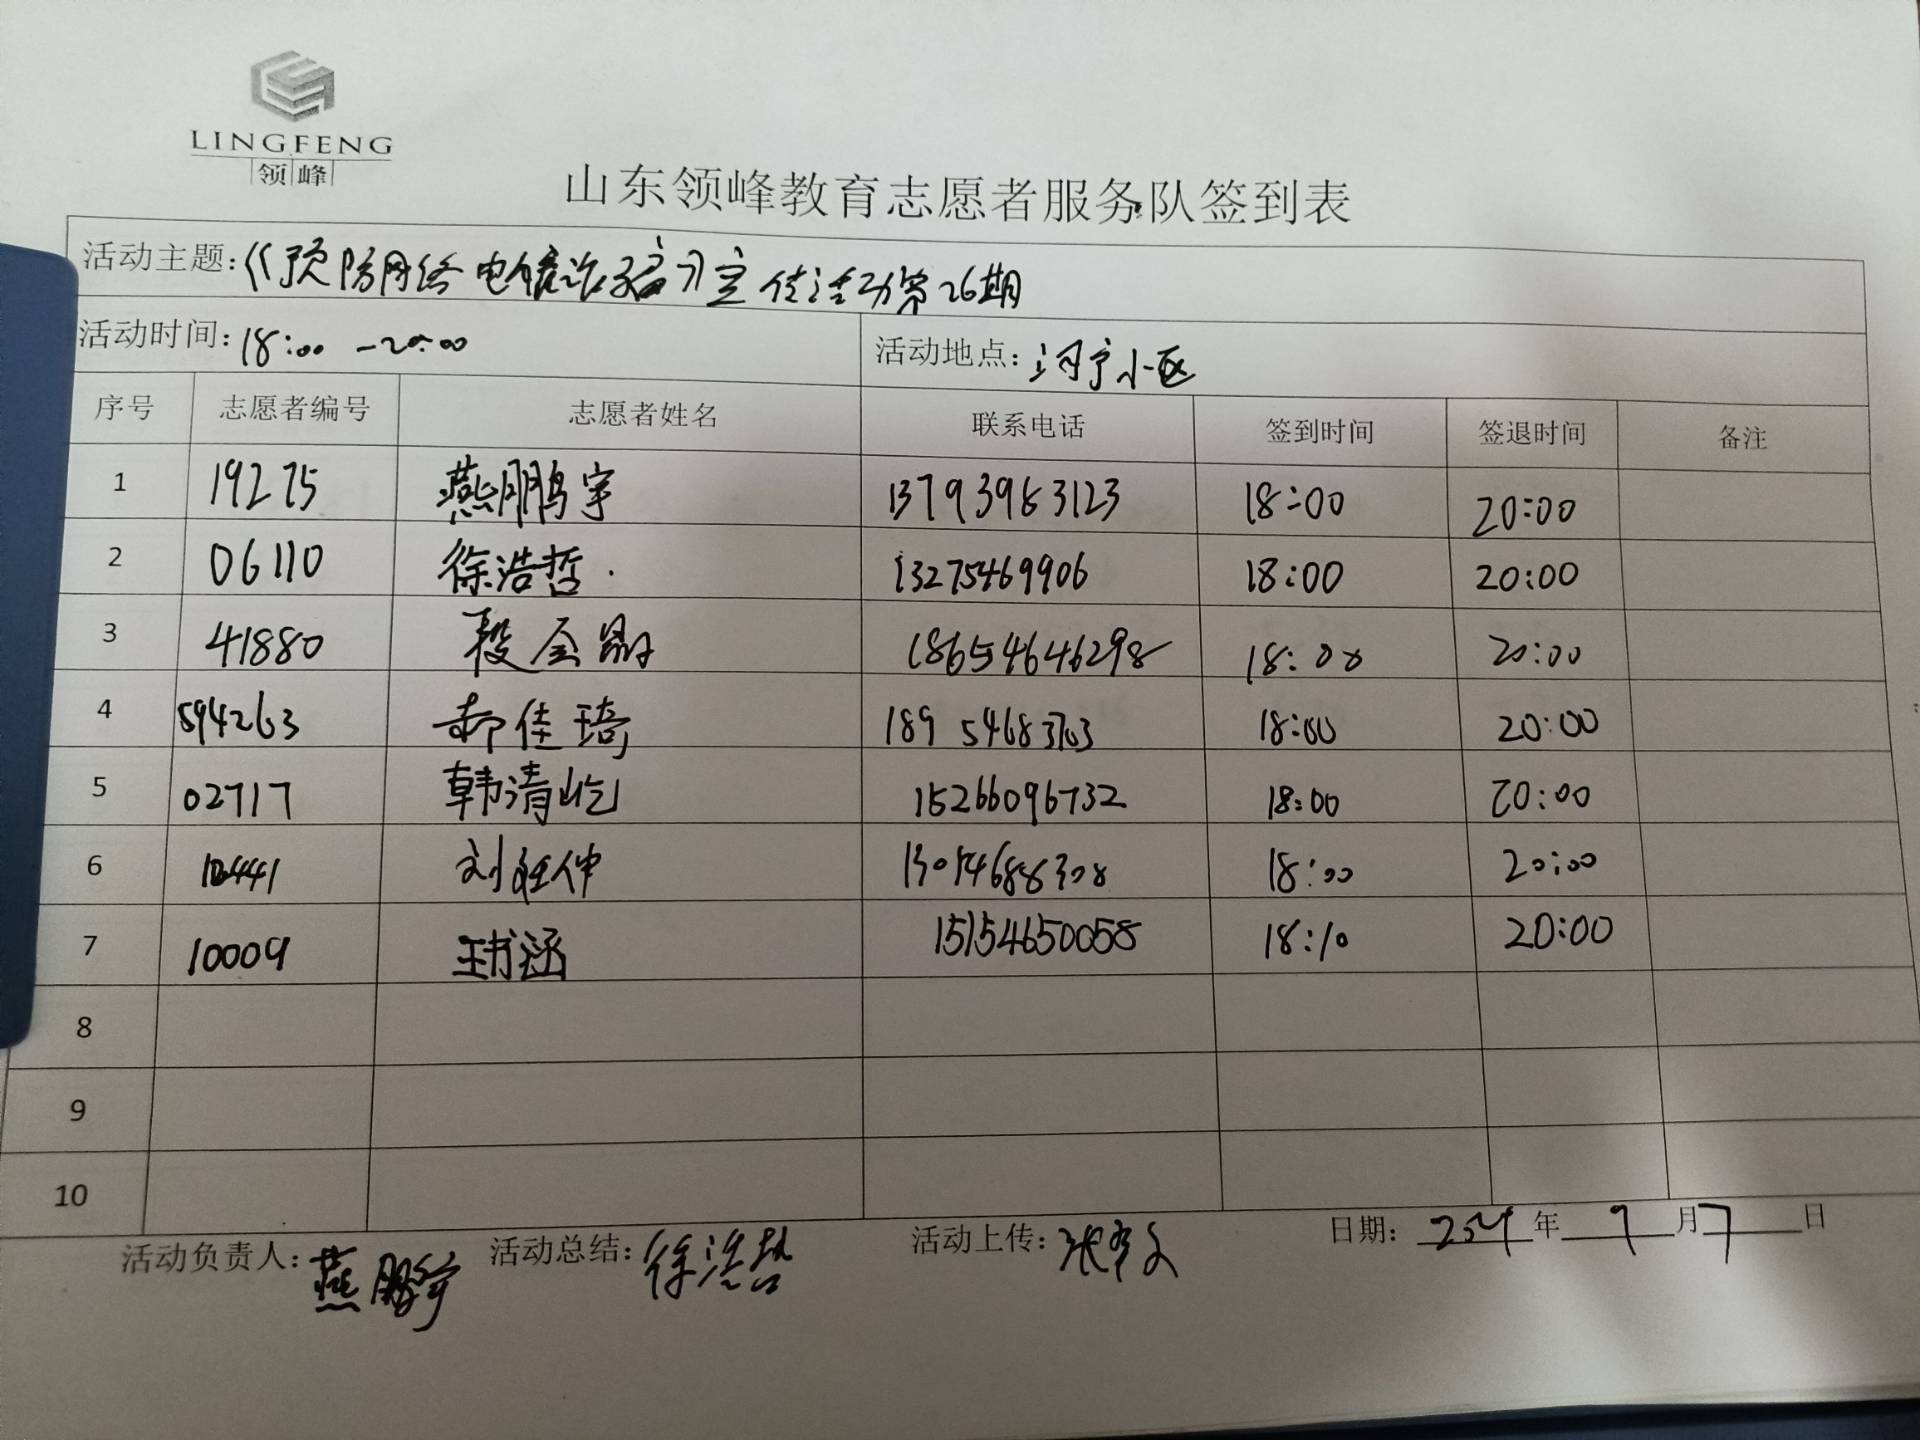 LINGFENG
领峰
山东领峰教育志愿者服务队签到表
活动主题：《预防网络电信诈骗》宣传活动第26期
活动时间：18:00 -20:00 活动地点：河宁小区
序号 志愿者编号 志愿者姓名 联系电话 签到时间 签退时间 备注
1 19275 燕鹏宇 13793963123 18:00 20:00
2 06110 徐浩哲 13275469906 18:00 20:00
3 41880 18654646298 18:00 20:00
4 594263 郝佳琦 18954683703 18:00 20:00
5 02717 韩清屹 15266096732 18:00 20:00
6 刘 仲 13054688308 18:00 20:00
7 10009 王书涵 15154650058 18:10 20:00
8
9
10
活动负责人：燕鹏宇 活动总结：徐浩哲 活动上传：张 文 日期： 年 9 月 7 日